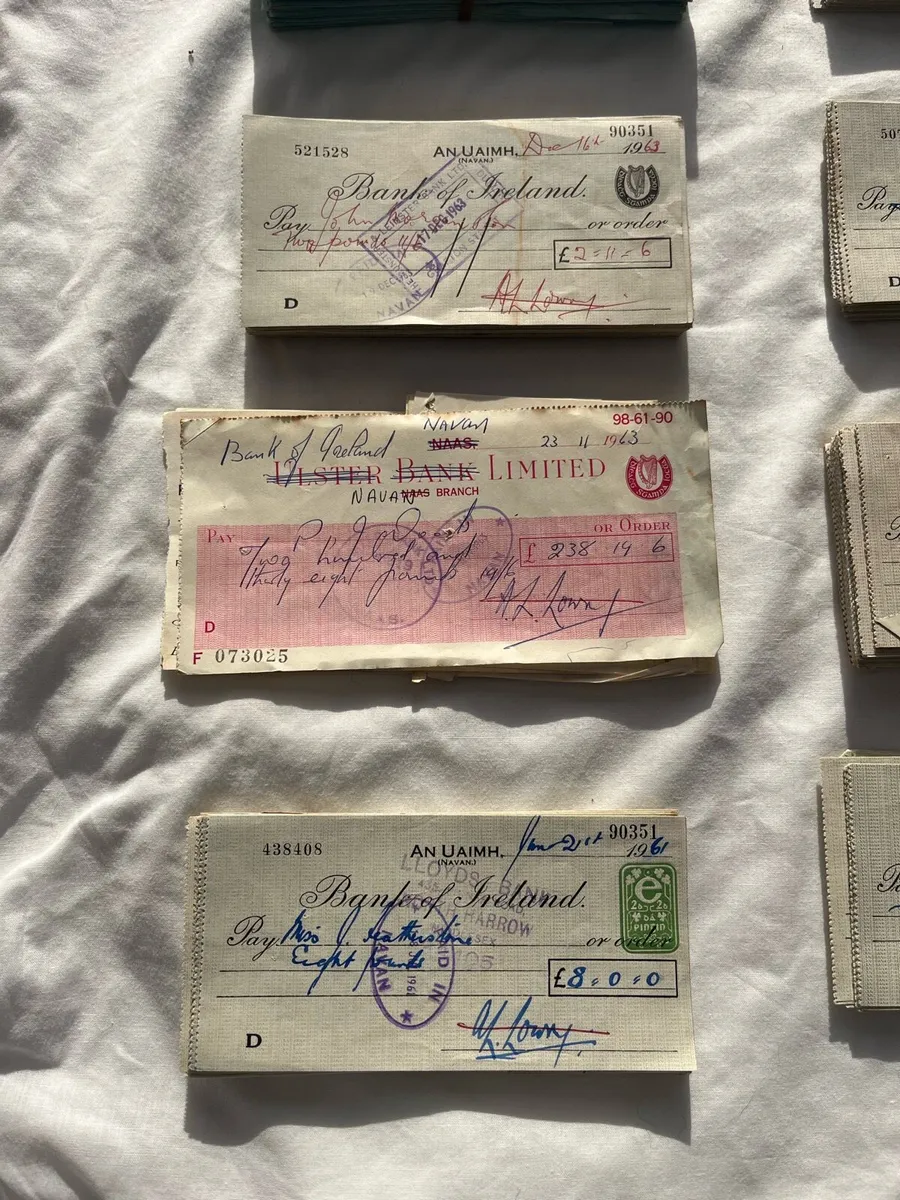 90351
521528 AN UAIMH, Dec 16th 1963
(NAVAN.)
Bank of Ireland.
Pay John or order
Two pounds 11/6
£2-11-6
17 DEC 1963
NAVAN
D
A.L. Lowry
98-61-90
NAVAN
NAAS, 23 11 1963
Bank of Ireland
ULSTER BANK LIMITED
NAVAN NAAS BRANCH
PAY P. J. OR ORDER
Two hundred and
£ 238 19 6
thirty eight pounds 19/6
A.L. Lowry
D
F 073025
90351
438408 AN UAIMH, Jan 21st 1961
(NAVAN.)
LLOYDS BANK
Bank of Ireland.
HARROW
e
2p 2p
PINGIN
Pay Miss J. Featherstone or order
Eight pounds
£8-0-0
PAID IN
NAVAN
1961
D
A.L. Lowry
507
Pay
D
P
Pa